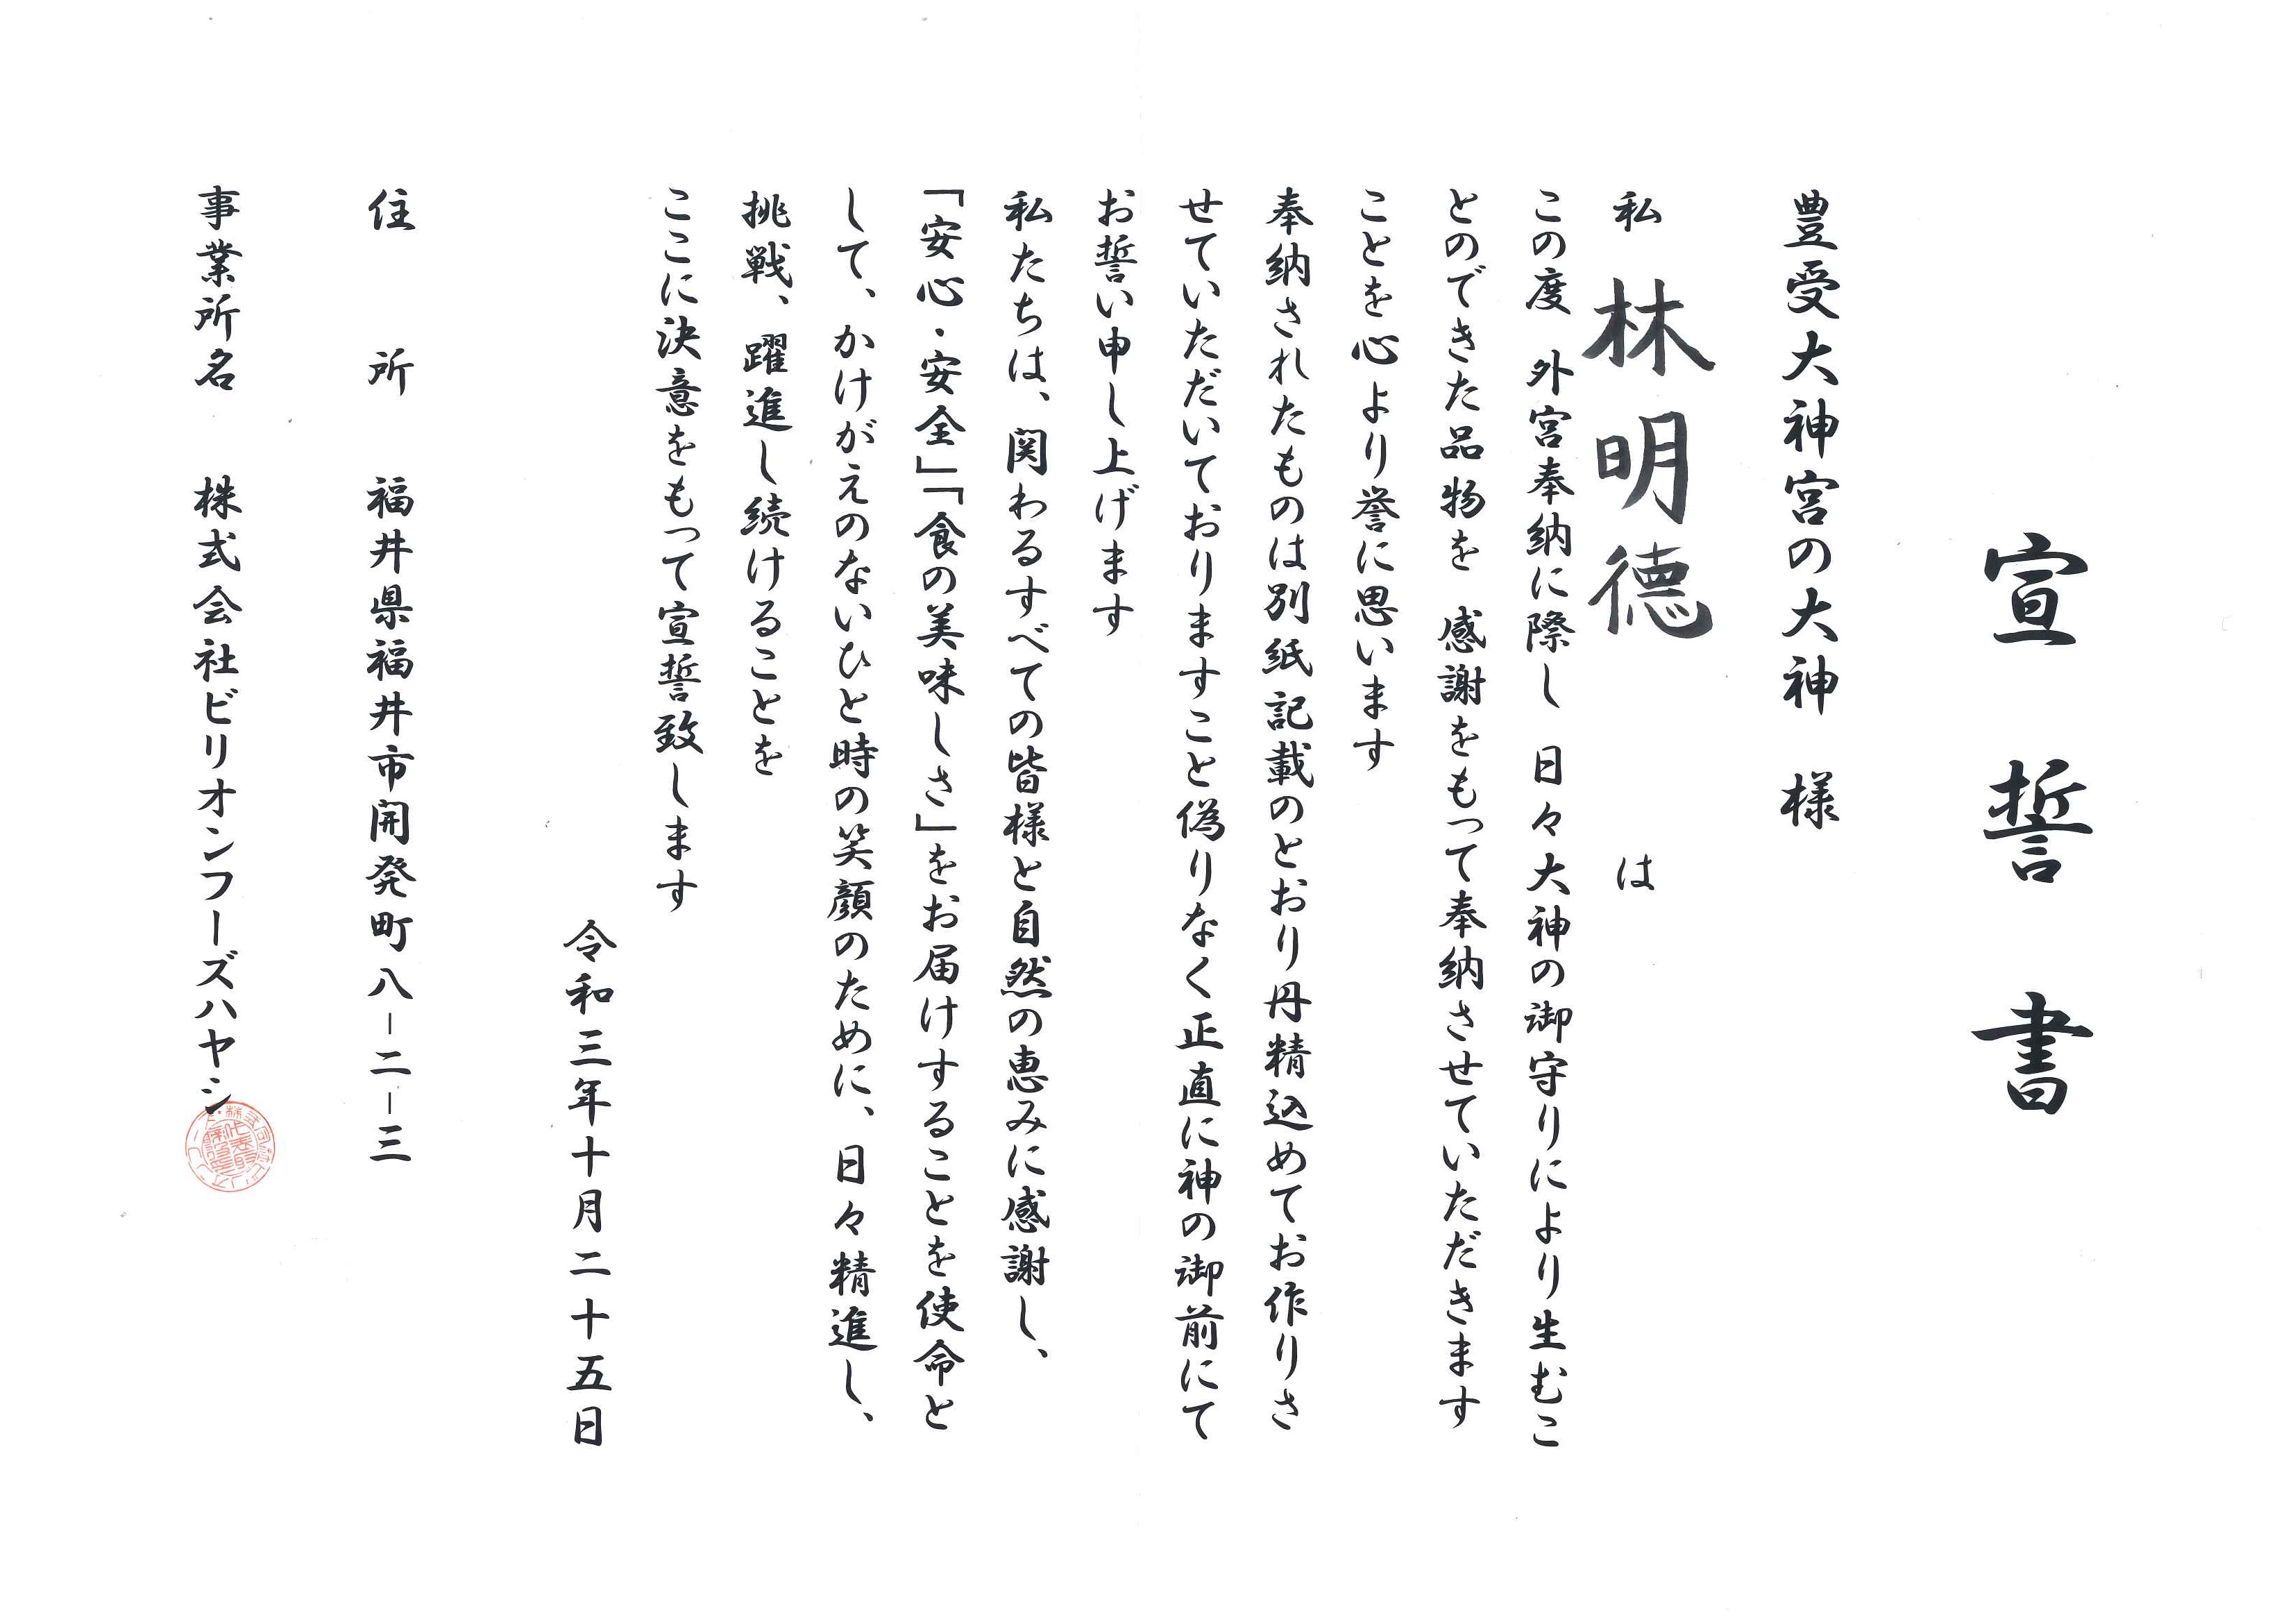 宣誓書
豊受大神宮の大神 様
私 林明德 は
この度 外宮奉納に際し 日々大神の御守りにより生むこ
とのできた品物を 感謝をもって奉納させていただきます
ことを心より誉に思います
奉納されたものは別紙記載のとおり丹精込めてお作りさ
せていただいておりますこと偽りなく正直に神の御前にて
お誓い申し上げます
私たちは、関わるすべての皆様と自然の恵みに感謝し、
「安心・安全」「食の美味しさ」をお届けすることを使命と
して、かけがえのないひと時の笑顔のために、日々精進し、
挑戦、躍進し続けることを
ここに決意をもって宣誓致します
令和三年十月二十五日
住所 福井県福井市開発町八-二-三
事業所名 株式会社ビリオンフーズハヤシ